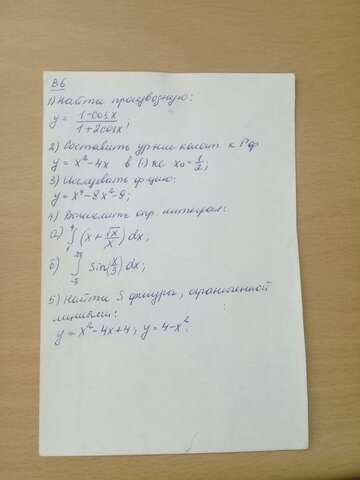 В6
1) Найти производную:
y = (1-cosx)/(1+2cosx);
2) Составить ур-ние касат. к Гф
y = x² - 4x в (·) х₀ = 1/2;
3) Исследовать ф-цию:
y = x⁴ - 8x² - 9;
4) Вычислить опр. интеграл:
а) ∫ (x + √x/x) dx;
б) ∫ sin(x/3) dx;
5) Найти S фигуры, ограниченной
линиями:
y = x² - 4x + 4; y = 4 - x².